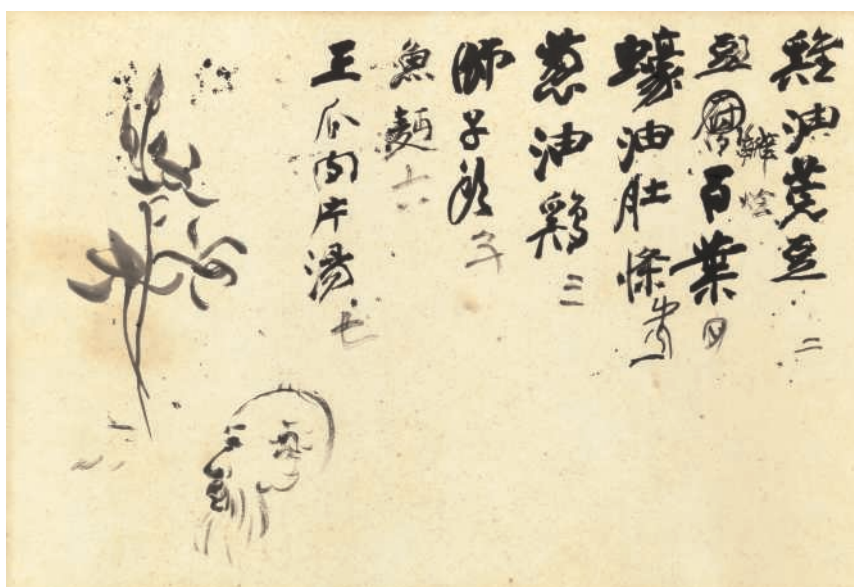 雞油荒豆 二
豆瓣燴百葉 四
蠔油肚條
葱油鷄 三
師子頭 五
魚麵 六
王瓜肉片湯 七